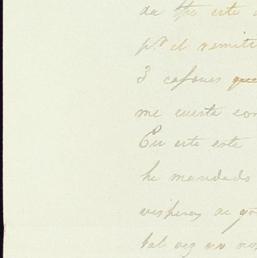 de este
pr. el remite
3 cajones que
me cuesta con
En este este
he mandado
visperas de
tal vez no